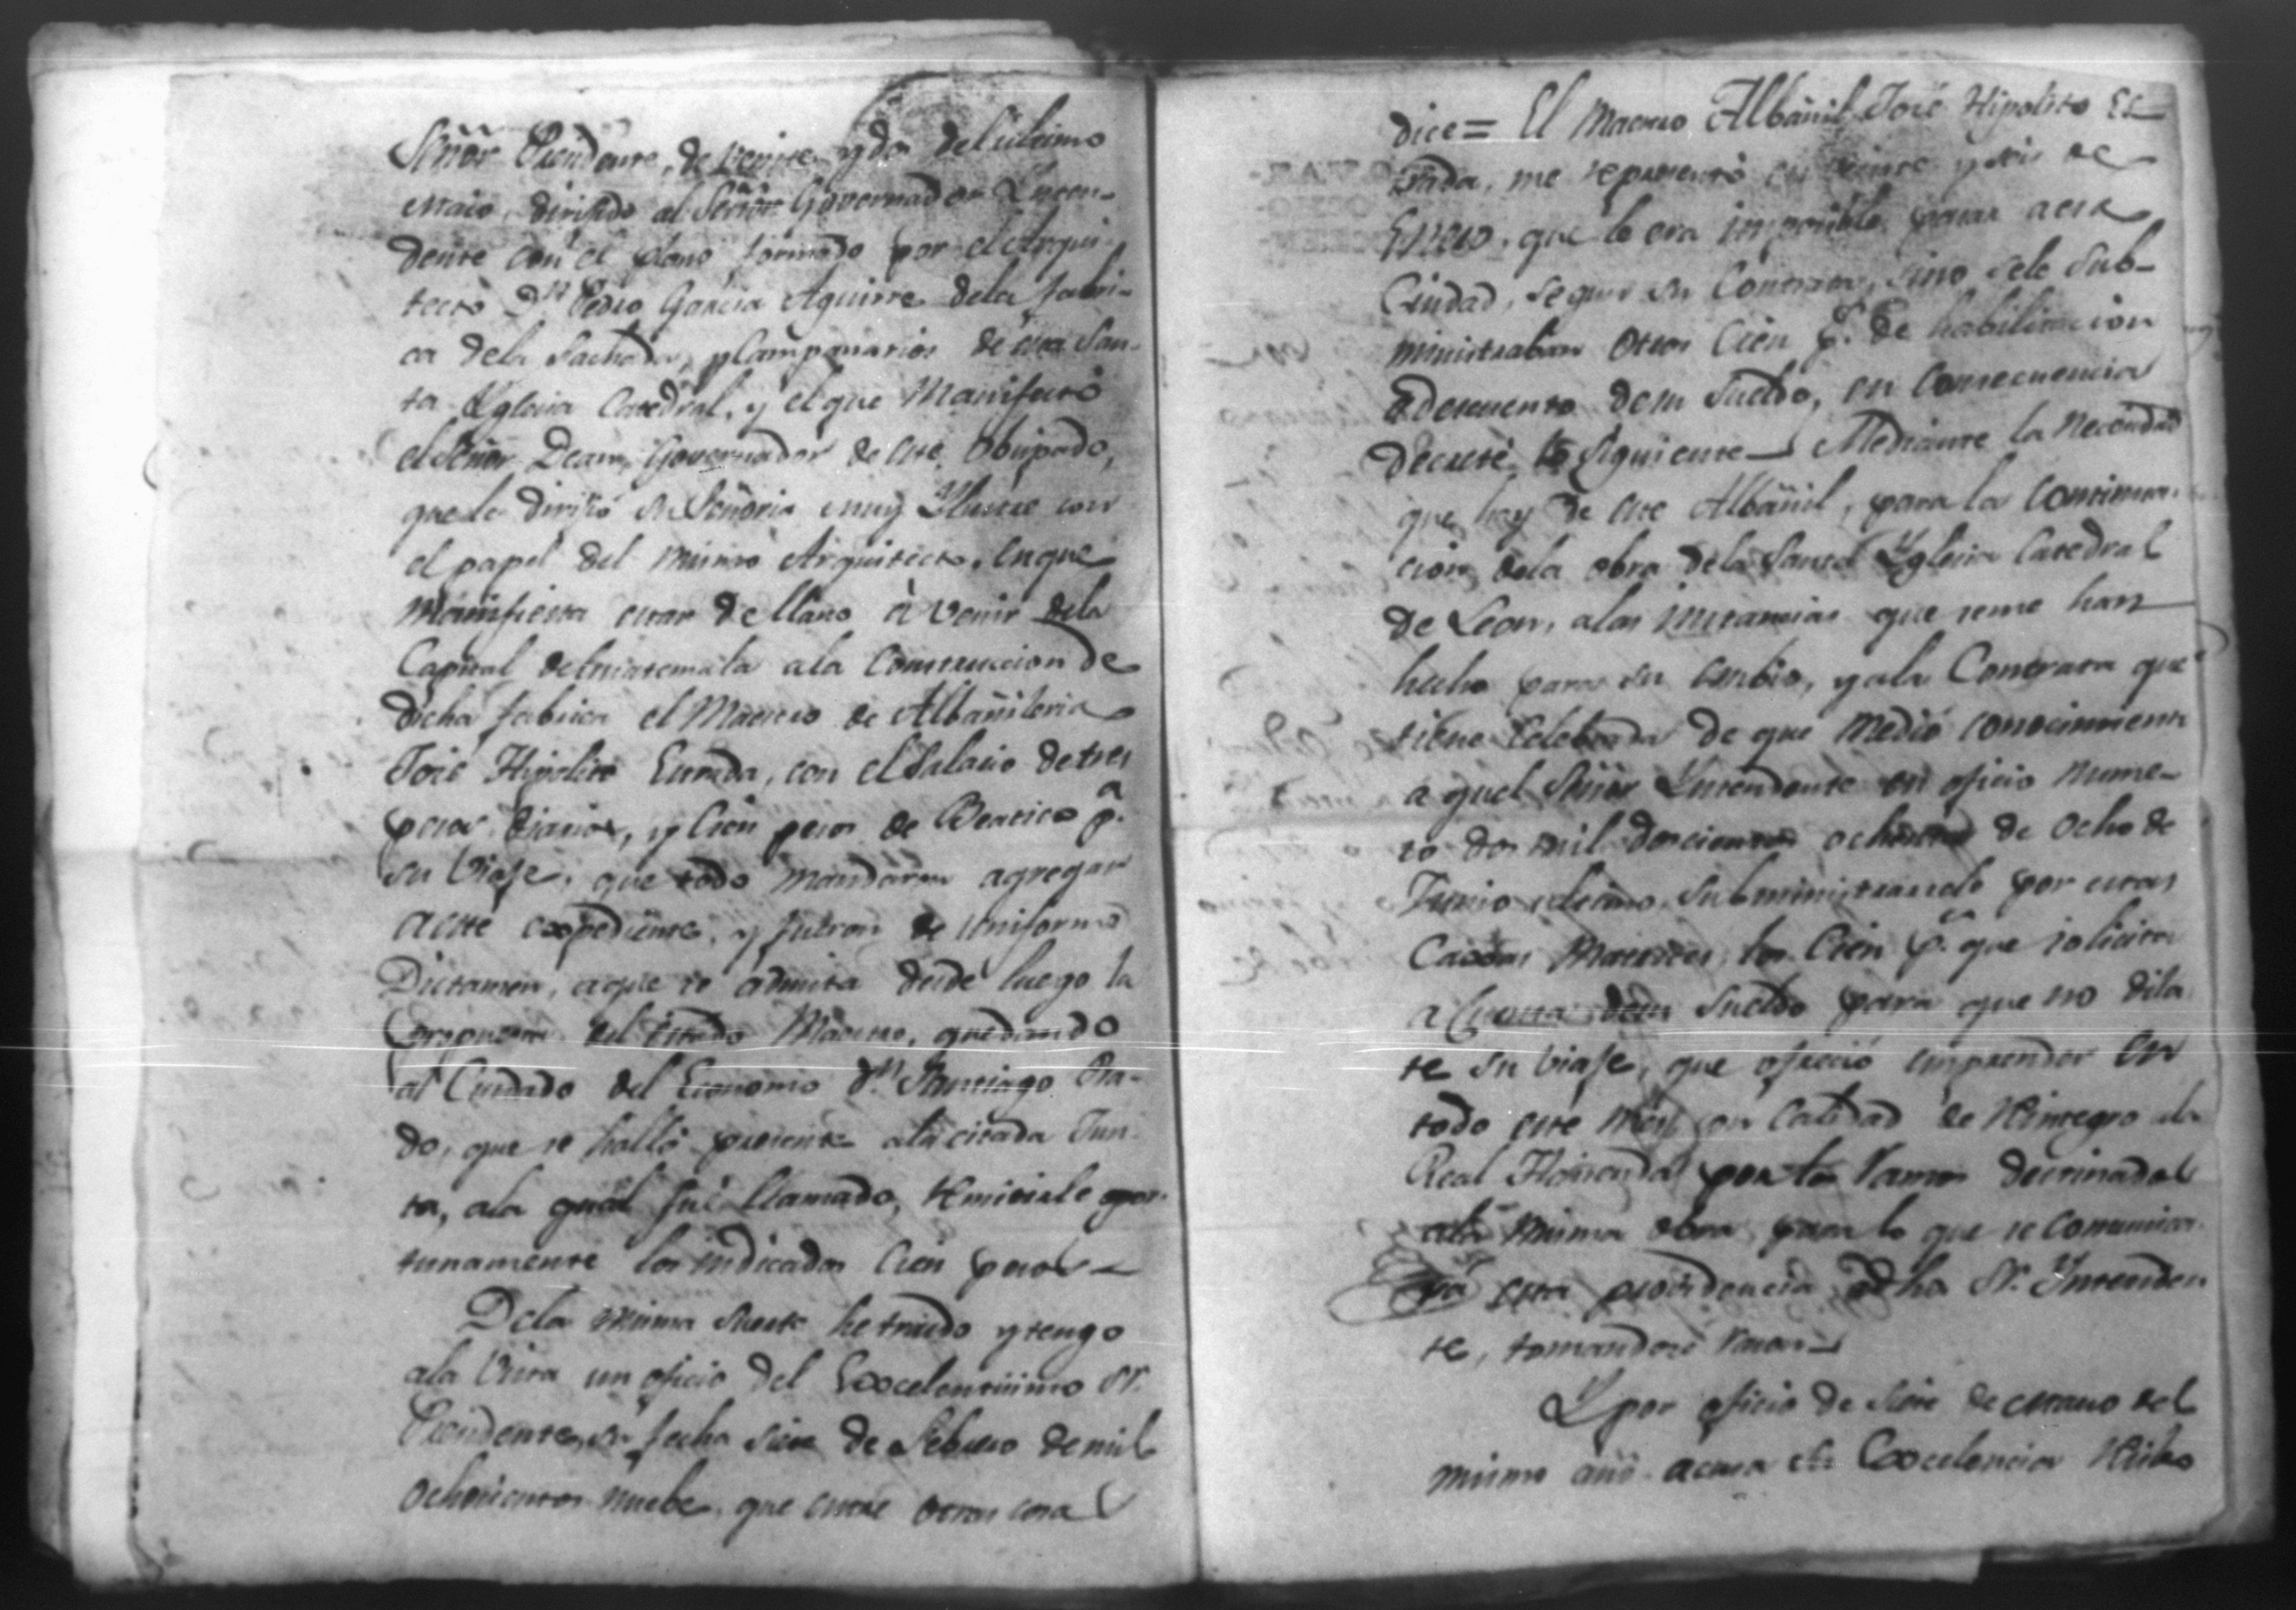 Señor Presidente, de veinte y dos del ultimo
Maio, dirijido al Señor Governador Inten-
dente con el plano formado por el Arqui-
tecto Dn Pedro Garcia Aguirre dela fabri-
ca dela Fachada, y Campanarios de esta San-
ta Yglecia Catedral, y el que Manifestó
el Señor Dean, Governador de este Obispado,
que le dirijió su Señoria muy Ylustre con
el papel del mismo Arquitecto, en que
Manifiesta estar de llano à venir dela
Capital de Guatemala ala Construccion de
dicha fabrica el Maestro de Albañileria
José Hipolito Estrada, con el Salario de tres
pesos diarios, y Cien pesos de Beatico p.a
su Viaje, que todo mandaron agregar
a este expediente, y fueron de uniforme
Dictamen, a que se admita desde luego la
propuesta del citado Maestro, quedando
al Cuidado del Economo Dn. Santiago Pra-
do, que se halló presente ala citada Jun-
ta, ala qual fué llamado, remitirle opor-
tunamente los indicados Cien pesos—
Dela misma suerte he traido y tengo
ala Vista un oficio del Excelentisimo Sr.
Presidente, su fecha siete de Febrero de mil
ochocientos nuebe, que entre otras cosas
dice= El Maestro Albañil José Hipolito Es-
trada, me representó en veinte y seis de
Enero, que le era imposible pasar a esa
Ciudad, segun su Contrata, sino sele Sub-
ministraban Otros Cien p.s de habilitacion
a descuento de su Sueldo, en Consecuencia
decreté lo Siguiente— Mediante la Necesidad
que hay de este Albañil, para la Continua-
cion dela obra dela Santa Yglesia Catedral
de Leon, alas instancias que se me han
hecho para su embio, y ala Contrata que
tiene Celebrada de que Medió conocimiento
aquel Señor Yntendente en oficio Nume-
ro dos mil doscientos ochenta de Ocho de
Junio ultimo, Subministrarsele por estas
Caxas Matrices, los Cien p.s que solicita
a Cuenta de su Sueldo para que no dila
te su Viaje, que ofreció emprender en
todo este Mes, con Calidad de Reintegro ala
Real Hacienda por los Ramos destinados
ala misma obra, para lo que se comunica-
rá esta providencia a dho Sr. Yntenden
te, tomandose razon—
Y por oficio de siete de
mismo año acusa Su Excelencia Recibo